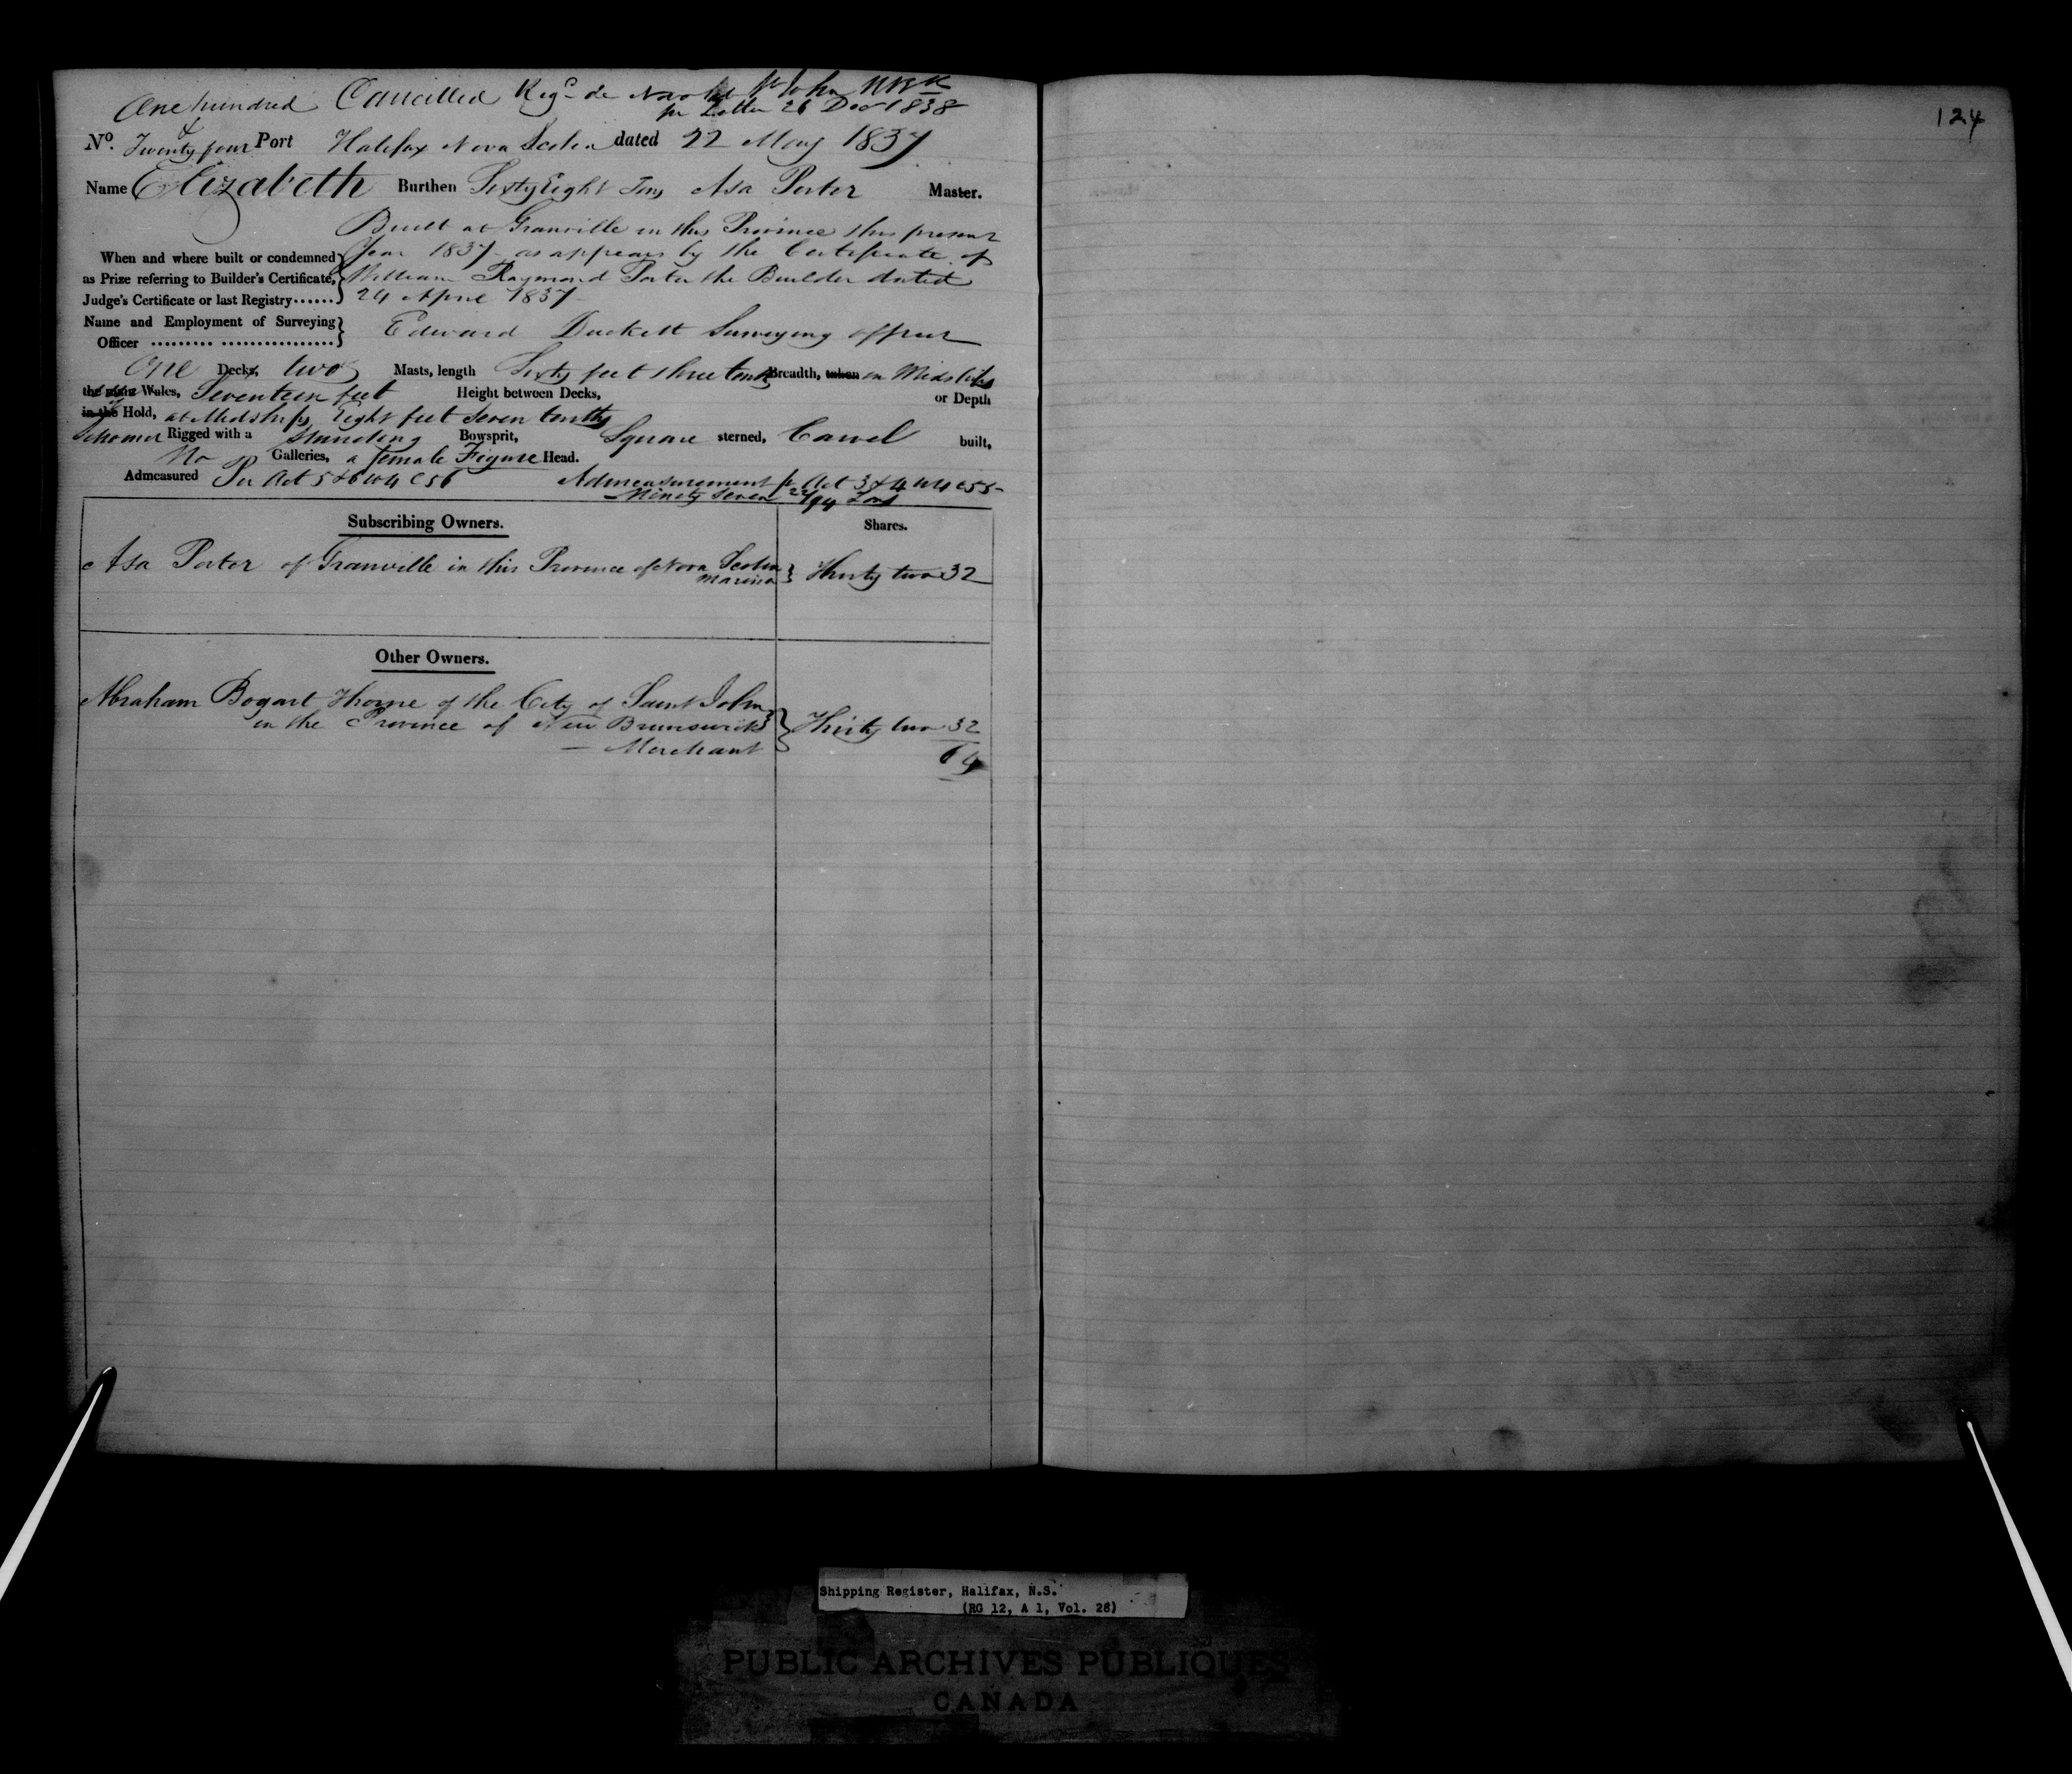 One hundred Cancelled Regd de Novo at St John NBk
pr Letter 26 Decr 1838
124
No. & Twenty four Port Halifax Nova Scotia dated 22 May 1837
Name Elizabeth Burthen Sixty Eight Tons Asa Porter Master.
Built at Granville in this Province this present
When and where built or condemned Year 1837 - as appears by the Certificate of
as Prize referring to Builder's Certificate, William Raymond Porter the Builder dated
Judge's Certificate or last Registry...... 24 April 1837
Name and Employment of Surveying
Officer ......... ................ Edward Duckett Surveying officer
One Decks, two Masts, length Sixty feet three tenths Breadth, taken in Midships
the main Wales, Seventeen feet Height between Decks, or Depth
in the Hold, at Midships Eight feet Seven tenths
Schooner Rigged with a Standing Bowsprit, Square sterned, Carvel built,
No Galleries, a female Figure Head.
Admeasured Per Act 5 & 6 W 4 C 56 Admeasurement pr Act 3 & 4 W 4 C 55
Ninety Seven 22/94 Tons
Subscribing Owners. Shares.
Asa Porter of Granville in this Province of Nova Scotia
Mariner } Thirty two 32
Other Owners.
Abraham Bogart Thorne of the City of Saint John
in the Province of New Brunswick } Thirty two 32
— Merchant
64
Shipping Register, Halifax, N.S.
(RG 12, A 1, Vol. 28)
PUBLIC ARCHIVES PUBLIQUES
CANADA